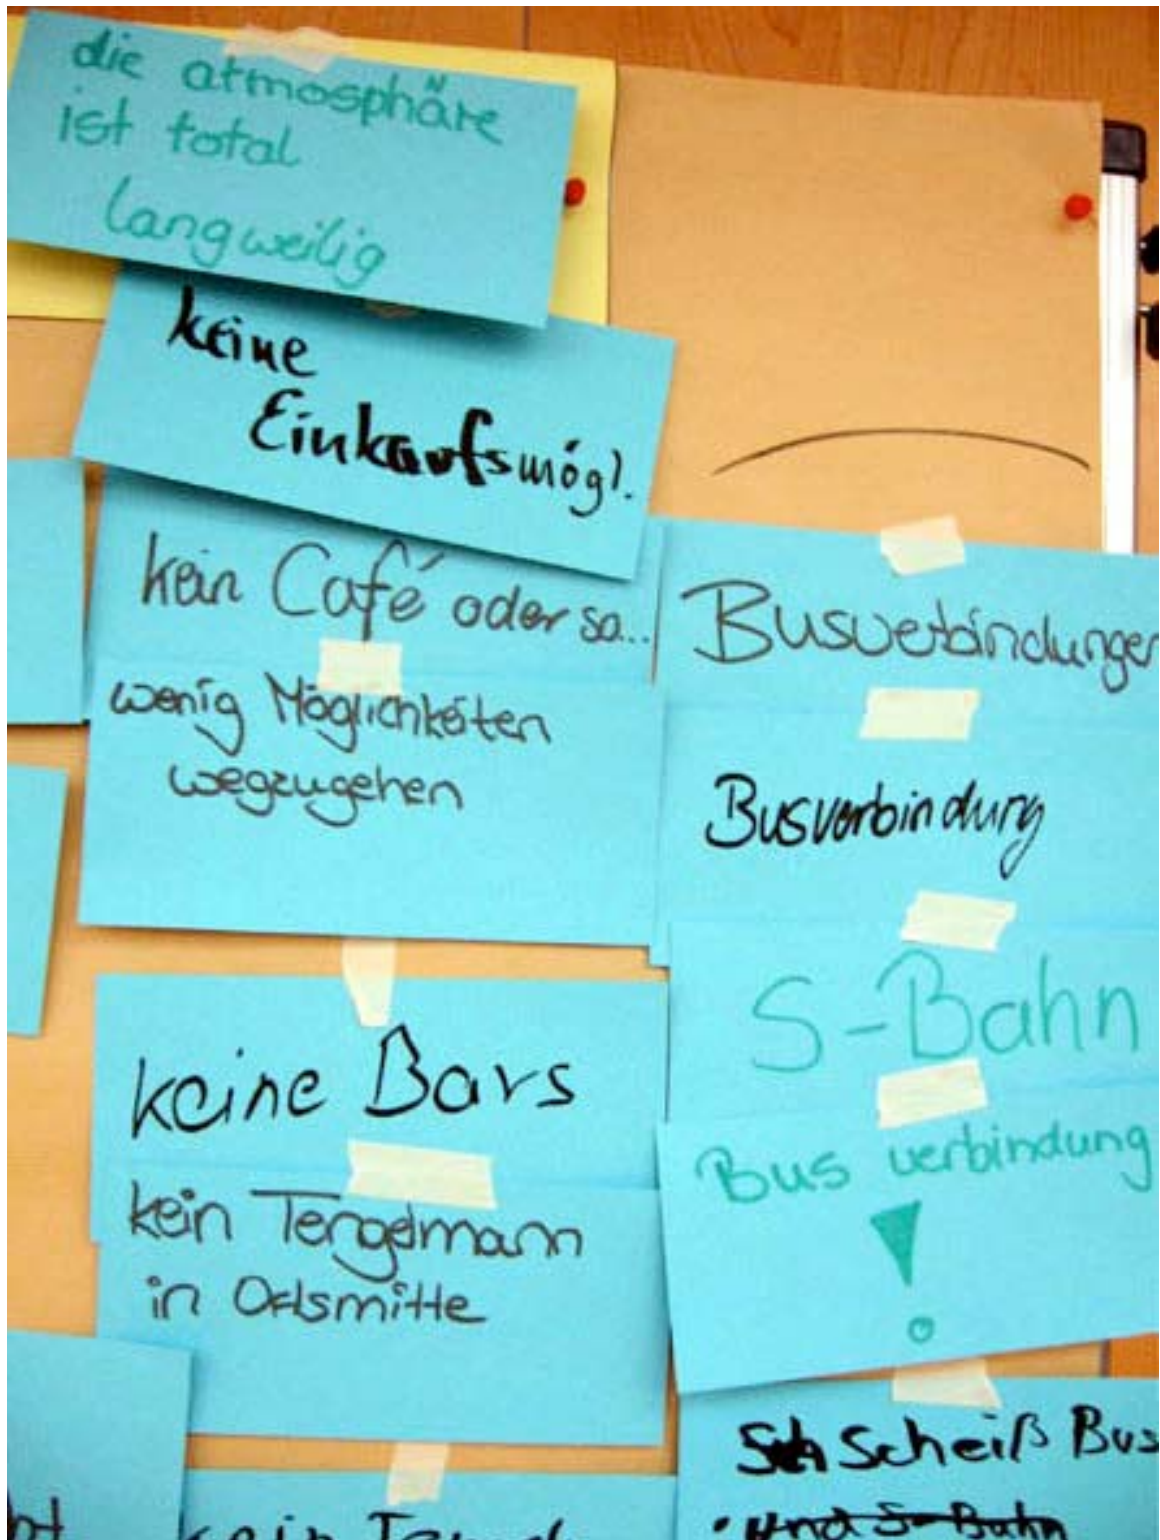 die atmosphäre
ist total
langweilig
keine
Einkaufsmögl.
kein Café oder so...
wenig Möglichkeiten
wegzugehen
keine Bars
kein Tengelmann
in Ortsmitte
kein
Busverbindungen
Busverbindung
S-Bahn
Bus verbindung
!
Scheiß Bus
und S-Bahn